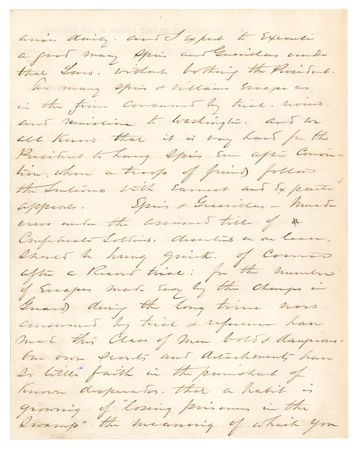 arise daily. and I expect to Execute
a good many Spies and Guerillas under
that Law. without bothering the President.
Too many Spies & villains Escape us
in the time consumed by trial. review
and remission to Washington. and we
all Know that it is very hard for the
President to hang Spies Even after Convic-
tion. when a troop of friends follow
the Sentence with Earnest and Ex parte
Appeals. Spies & Guerillas - Murd-
erers under the assumed title of
Confederate Soldiers, deserters on leave,
should be hung quick, of Course
after a Record trial: for the number
of Escapes made Easy by the changes in
Guard during the long time now
consumed by trial & reference have
made this Class of Men bold & dangerous.
Our own Scouts and detachments have
So little faith in the punishment of
Known desperados. that a habit is
growing of "losing prisoners in the
Swamp" the meaning of which you